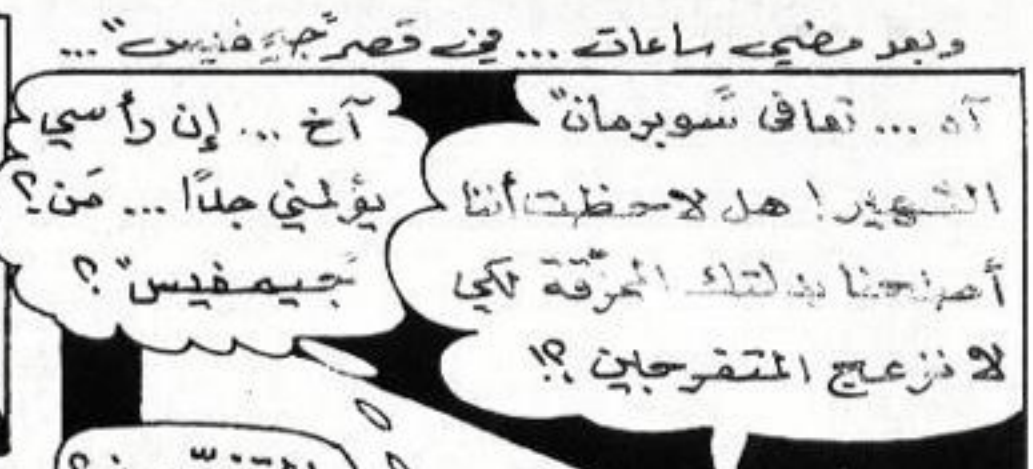 وبعد مضي ساعات ... في قصر "جيم فيس" ...
آه ... تعافى "سوبرمان"
الشهير! هل لاحظت أننا
أصلحنا بدلتك الممزّقة لكي
لا نزعج المتفرجين ؟!
آخ ... إن رأسي
يؤلمني جدًا ... مَن ؟
"جيم فيس" ؟